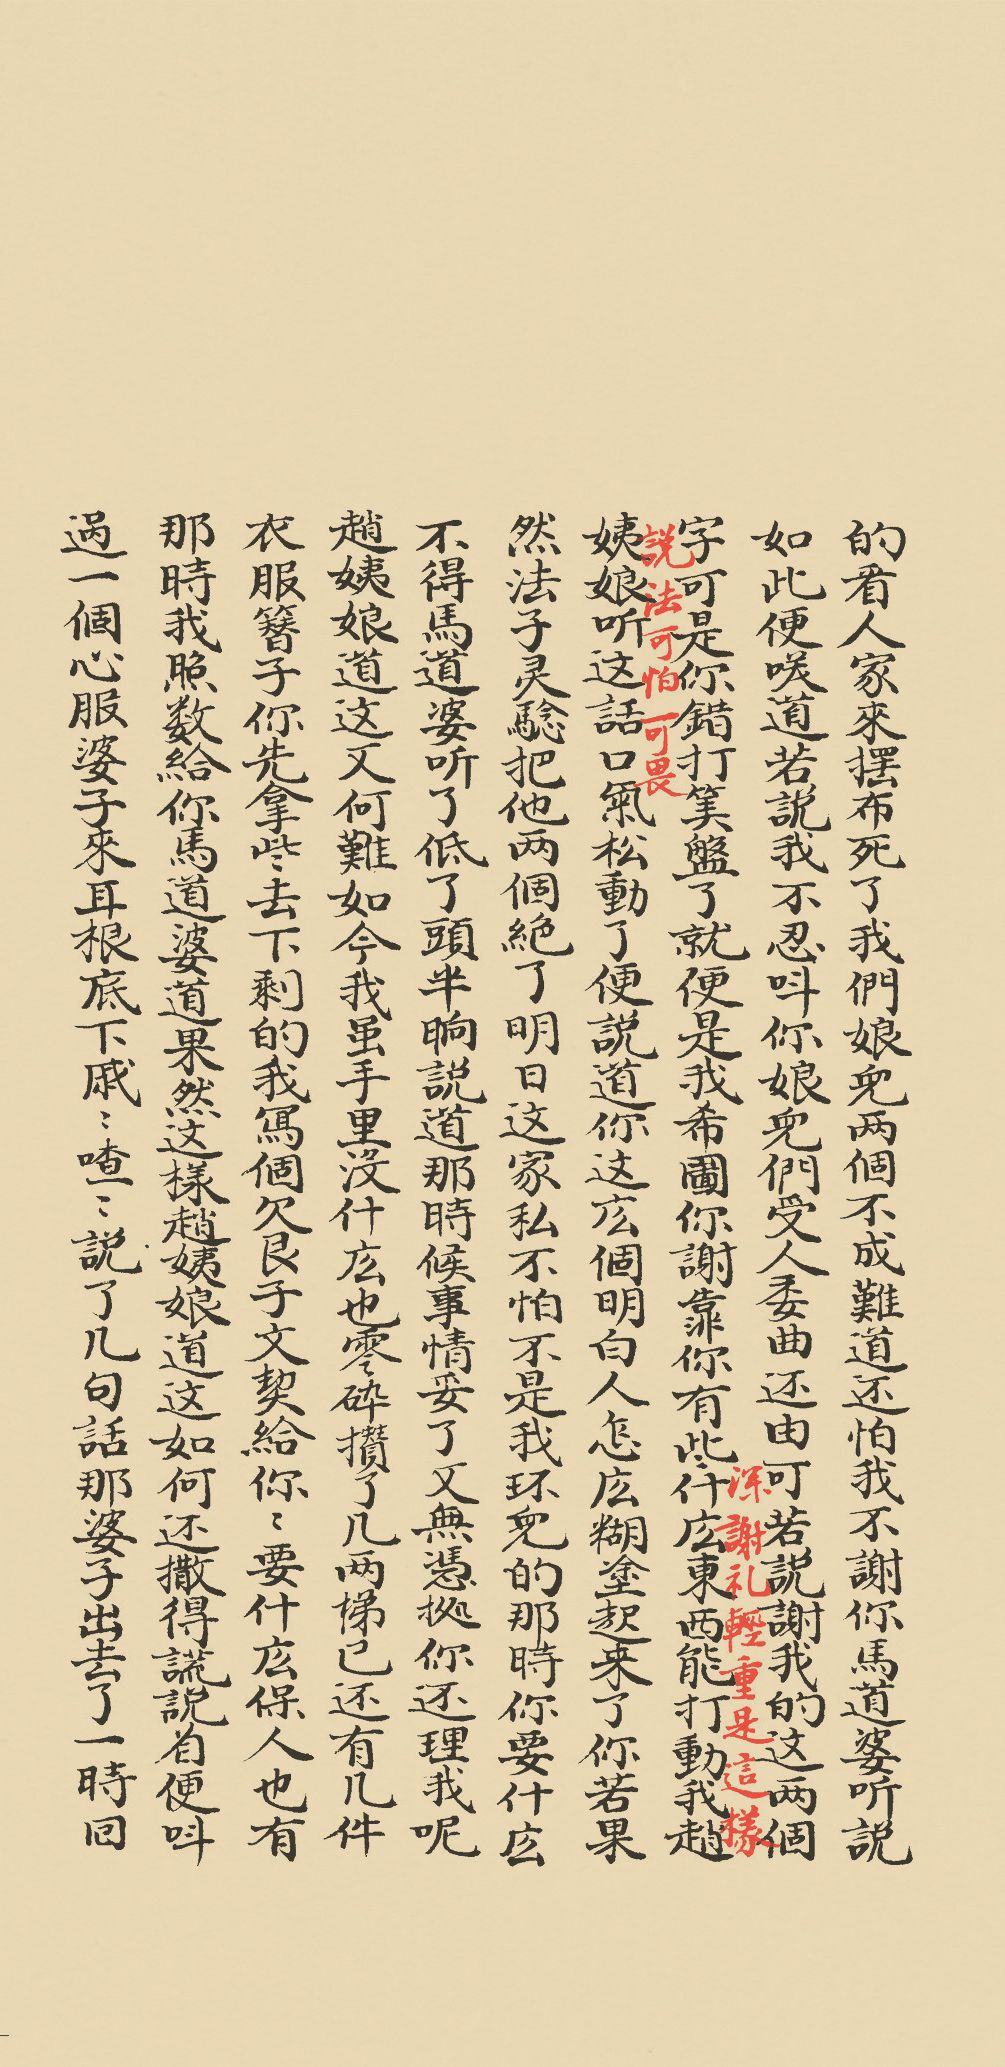 的看人家來擺布死了我們娘兒两個不成難道还怕我不謝你馬道婆听説
如此便咲道若説我不忍呌你娘兒們受人委曲还由可若説謝我的这两個
深謝礼輕重是這樣
字可是你錯打筭盤了就便是我希圖你謝靠你有些什庅東西能打動我趙
説法可怕可畏
姨娘听这話口氣松動了便説道你这庅個明白人怎庅糊塗起来了你若果
然法子灵驗把他两個絕了明日这家私不怕不是我环兒的那時你要什庅
不得馬道婆听了低了頭半晌説道那時候事情妥了又無憑拠你还理我呢
趙姨娘道这又何難如今我虽手里沒什庅也零碎攢了几两梯已还有几件
衣服簪子你先拿些去下剩的我寫個欠艮子文契給你〻要什庅保人也有
那時我照数給你馬道婆道果然这樣趙姨娘道这如何还撒得謊説着便呌
過一個心服婆子來耳根底下戚〻喳〻説了几句話那婆子出去了一時回